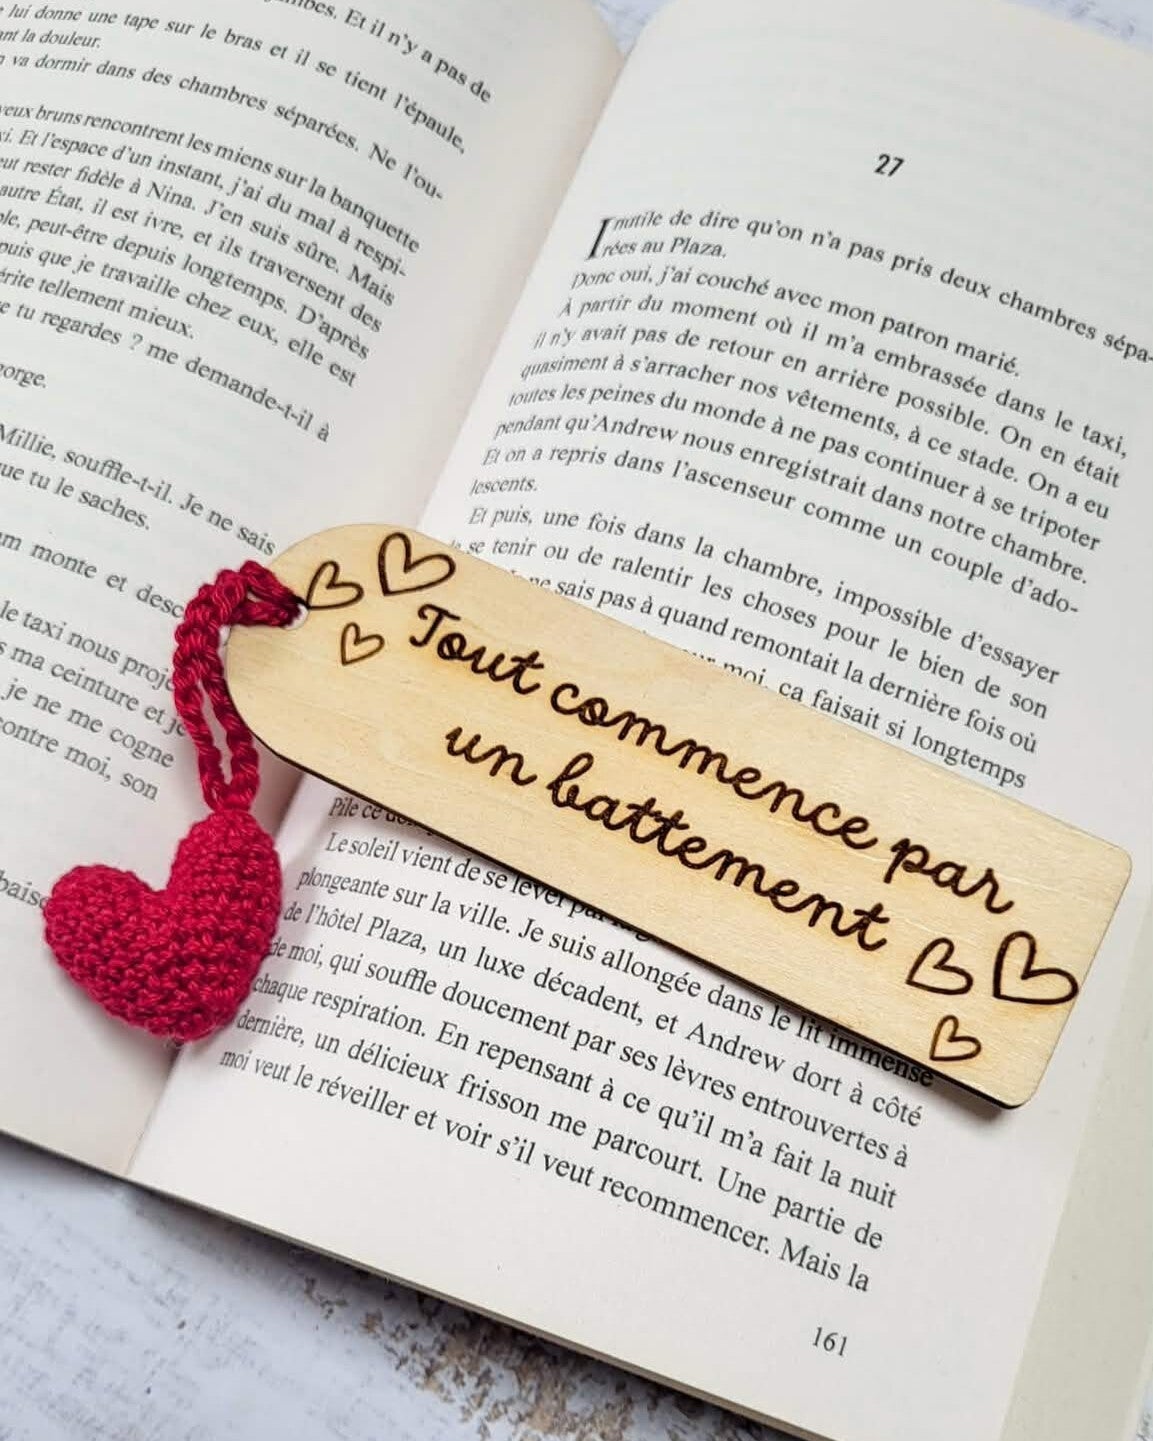 mbes. Et il n'y a pas de
lui donne une tape sur le bras et il se tient l'épaule,
ant la douleur.
va dormir dans des chambres séparées. Ne l'ou-
yeux bruns rencontrent les miens sur la banquette
xi. Et l'espace d'un instant, j'ai du mal à respi-
eut rester fidèle à Nina. J'en suis sûre. Mais
autre État, il est ivre, et ils traversent des
ple, peut-être depuis longtemps. D'après
puis que je travaille chez eux, elle est
érite tellement mieux.
tu regardes ? me demande-t-il à
orge.
Millie, souffle-t-il. Je ne sais
que tu le saches.
um monte et desc
le taxi nous proje
s ma ceinture et je
je ne me cogne
contre moi, son
baise
27
Inutile de dire qu'on n'a pas pris deux chambres sépa-
rées au Plaza.
Donc oui, j'ai couché avec mon patron marié.
À partir du moment où il m'a embrassée dans le taxi,
il n'y avait pas de retour en arrière possible. On en était
quasiment à s'arracher nos vêtements, à ce stade. On a eu
toutes les peines du monde à ne pas continuer à se tripoter
pendant qu'Andrew nous enregistrait dans notre chambre.
Et on a repris dans l'ascenseur comme un couple d'ado-
lescents.
Et puis, une fois dans la chambre, impossible d'essayer
se tenir ou de ralentir les choses pour le bien de son
ne sais pas à quand remontait la dernière fois où
moi, ça faisait si longtemps
Tout commence par
un battement
Pile ce
Le soleil vient de se lever
plongeante sur la ville. Je suis allongée dans le lit immense
de l'hôtel Plaza, un luxe décadent, et Andrew dort à côté
de moi, qui souffle doucement par ses lèvres entrouvertes à
chaque respiration. En repensant à ce qu'il m'a fait la nuit
dernière, un délicieux frisson me parcourt. Une partie de
moi veut le réveiller et voir s'il veut recommencer. Mais la
161